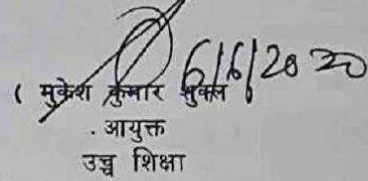 6/6/2020
( मुकेश कुमार शुक्ल )
. आयुक्त
उच्च शिक्षा